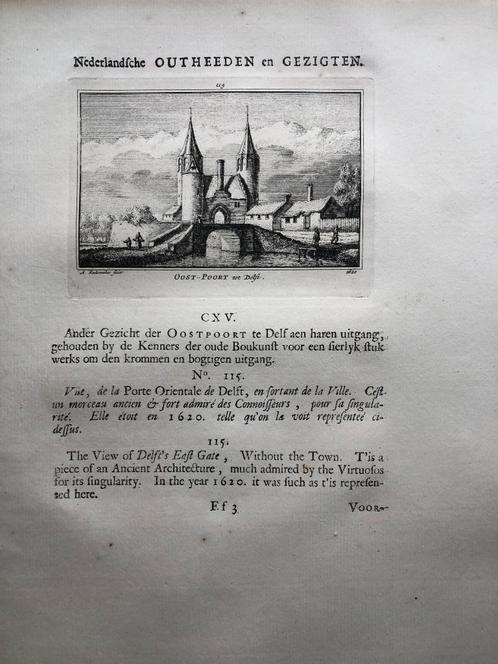 Nederlandſche OUTHEEDEN en GEZIGTEN.
115
A. Rademaker fecit
OOST-POORT te Delft.
1620
CXV.
Ander Gezicht der OOSTPOORT te Delf aen haren uitgang,
gehouden by de Kenners der oude Boukunſt voor een ſierlyk ſtuk
werks om den krommen en bogtigen uitgang.
Nº. 115.
Vüe, de la Porte Orientale de Delft, en ſortant de la Ville. C'eſt
un morceau ancien & fort admiré des Connoiſſeurs, pour ſa ſingula-
rité. Elle étoit en 1620. telle qu'on la voit repreſenteé ci-
deſſus.
115.
The View of Delft's Eaſt Gate, Without the Town. T'is a
piece of an Ancient Architecture, much admired by the Virtuoſos
for its ſingularity. In the year 1620. it was ſuch as t'is repreſen-
ted here.
Ff 3 VOOR-